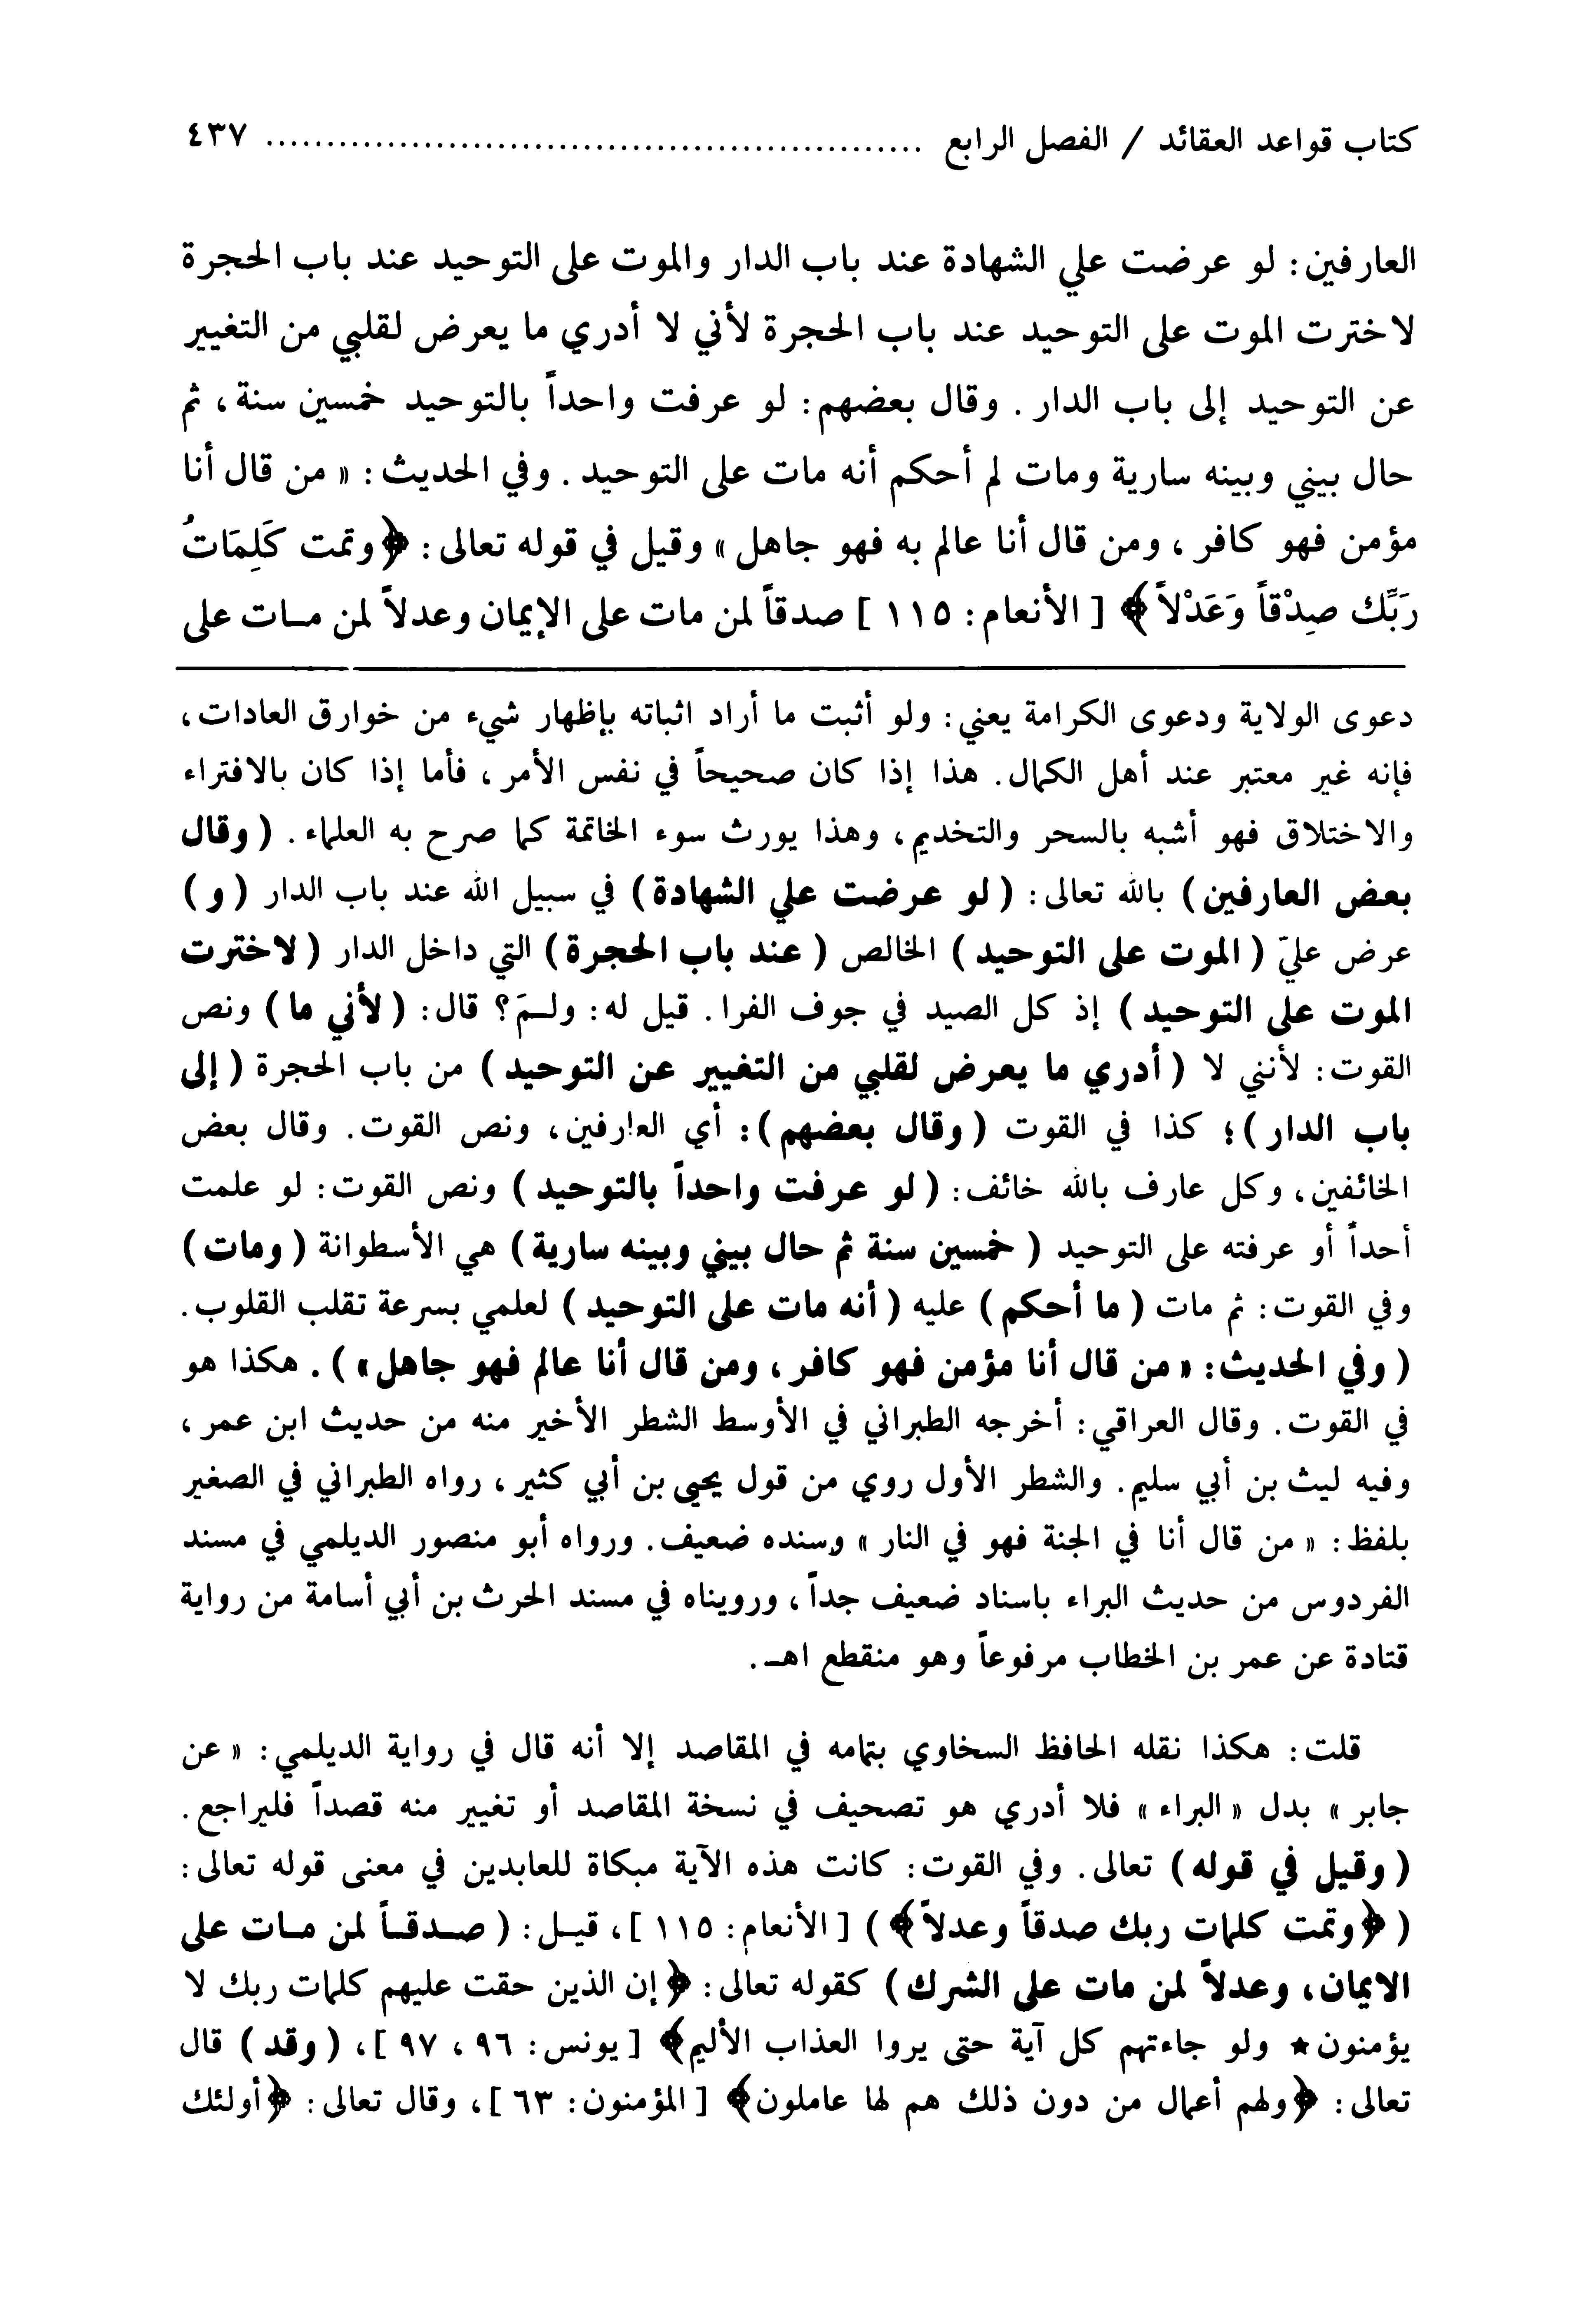 كتاب قواعد العقائد / الفصل الرابع ...................................................... ٤٣٧
العارفين: لو عرضت علي الشهادة عند باب الدار والموت على التوحيد عند باب الحجرة
لاخترت الموت على التوحيد عند باب الحجرة لأني لا أدري ما يعرض لقلبي من التغيير
عن التوحيد إلى باب الدار . وقال بعضهم: لو عرفت واحداً بالتوحيد خمسين سنة، ثم
حال بيني وبينه سارية ومات لم أحكم أنه مات على التوحيد . وفي الحديث: « من قال أنا
مؤمن فهو كافر ، ومن قال أنا عالم به فهو جاهل » وقيل في قوله تعالى: ﴿وتمت كَلِمَاتُ
رَبِّك صِدْقاً وَعَدْلاً﴾ [ الأنعام: ١١٥ ] صدقاً لمن مات على الإيمان وعدلاً لمن مـات على
دعوى الولاية ودعوى الكرامة يعني: ولو أثبت ما أراد اثباته بإظهار شيء من خوارق العادات،
فإنه غير معتبر عند أهل الكمال. هذا إذا كان صحيحاً في نفس الأمر ، فأما إذا كان بالافتراء
والاختلاق فهو أشبه بالسحر والتخديم، وهذا يورث سوء الخاتمة كما صرح به العلماء. ( وقال
بعض العارفين) بالله تعالى: ( لو عرضت علي الشهادة) في سبيل الله عند باب الدار ( و )
عرض عليّ ( الموت على التوحيد ) الخالص ( عند باب الحجرة) التي داخل الدار ( لاخترت
الموت على التوحيد ) إذ كل الصيد في جوف الفرا. قيل له: ولـمَ؟ قال: ( لأني ما ) ونص
القوت: لأنني لا ( أدري ما يعرض لقلبي من التغيير عن التوحيد ) من باب الحجرة ( إلى
باب الدار )؛ كذا في القوت ( وقال بعضهم): أي العارفين، ونص القوت. وقال بعض
الخائفين، وكل عارف بالله خائف: ( لو عرفت واحداً بالتوحيد ) ونص القوت: لو علمت
أحداً أو عرفته على التوحيد ( خمسين سنة ثم حال بيني وبينه سارية) هي الأسطوانة ( ومات )
وفي القوت: ثم مات ( ما أحكم ) عليه ( أنه مات على التوحيد ) لعلمي بسرعة تقلب القلوب.
( وفي الحديث: « من قال أنا مؤمن فهو كافر ، ومن قال أنا عالم فهو جاهل » ) . هكذا هو
في القوت. وقال العراقي: أخرجه الطبراني في الأوسط الشطر الأخير منه من حديث ابن عمر ،
وفيه ليث بن أبي سليم. والشطر الأول روي من قول يحيى بن أبي كثير ، رواه الطبراني في الصغير
بلفظ: « من قال أنا في الجنة فهو في النار » وسنده ضعيف. ورواه أبو منصور الديلمي في مسند
الفردوس من حديث البراء باسناد ضعيف جداً، ورويناه في مسند الحرث بن أبي أسامة من رواية
قتادة عن عمر بن الخطاب مرفوعاً وهو منقطع اهـ.
قلت: هكذا نقله الحافظ السخاوي بتمامه في المقاصد إلا أنه قال في رواية الديلمي: « عن
جابر » بدل « البراء » فلا أدري هو تصحيف في نسخة المقاصد أو تغيير منه قصداً فليراجع.
( وقيل في قوله ) تعالى. وفي القوت: كانت هذه الآية مبكاة للعابدين في معنى قوله تعالى:
( ﴿وتمت كلمات ربك صدقاً وعدلاً﴾ ) [ الأنعام: ١١٥ ]، قيـل: ( صـدقـاً لمن مـات على
الايمان، وعدلاً لمن مات على الشرك ) كقوله تعالى: ﴿إن الذين حقت عليهم كلمات ربك لا
يؤمنون★ ولو جاءتهم كل آية حتى يروا العذاب الأليم﴾ [ يونس: ٩٦ ، ٩٧ ]، ( وقد ) قال
تعالى: ﴿ولهم أعمال من دون ذلك هم لها عاملون﴾ [ المؤمنون: ٦٣ ]، وقال تعالى: ﴿أولئك